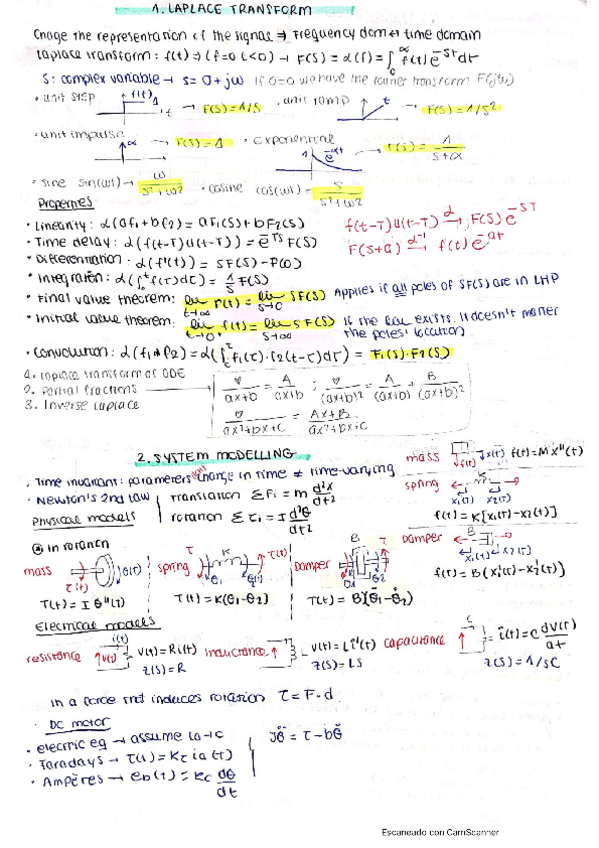 1. LAPLACE TRANSFORM
Change the representation of the signals ⇒ Frequency dom ↔ time domain
Laplace transform: f(t) ⇒ (f=0 t<0) → F(S) = α(f) = ∫₀^∞ f(t)e^-st dt
S: complex variable → s = σ + jω If σ=0 we have the Fourier transform F(jω)
· unit step f(t) 1 t → F(S) = 1/S · unit ramp t → F(S) = 1/S²
· unit impulse ∞ → F(S) = 1 · exponential 1 e^-at → F(S) = 1/(S+α)
· sine sin(ωt) → ω/(s²+ω²) · cosine cos(ωt) → S/(S²+ω²)
Properties
· Linearity: α(af₁+bf₂) = aF₁(S) + bF₂(S)
f(t-T)u(t-T) →α F(S)e^-ST
· Time delay: α(f(t-T)u(t-T)) = e^-TS F(S)
F(S+a) →α^-1 f(t)e^-at
· Differentiation: α(f'(t)) = SF(S) - f(0)
· Integration: α(∫₀^t f(τ)dτ) = 1/S F(S)
· Final value theorem: lim t→∞ f(t) = lim s→0 SF(S) Applies if all poles of SF(S) are in LHP
· Initial value theorem: lim t→0 f(t) = lim s→∞ SF(S) If the lim exists. It doesn't matter
the poles' location
· Convolution: α(f₁*f₂) = α(∫₀^t f₁(τ)·f₂(t-τ)dτ) = F₁(S)·F₂(S)
1. Laplace transform of ODE
2. Partial fractions
3. Inverse Laplace
♡/(ax+b) = A/(ax+b) ; ♡/(ax+b)² = A/(ax+b) + B/(ax+b)²
♡/(ax²+bx+c) = (Ax+B)/(ax²+bx+c)
2. SYSTEM MODELLING
· Time invariant: parameters don't change in time ≠ time-varying
· Newton's 2nd law
translation ΣFi = m d²x/dt²
rotation Στi = I d²θ/dt²
Physical models
mass f(t) x(t) f(t) = Mx''(t)
spring K x₁(t) x₂(t)
f(t) = K[x₁(t)-x₂(t)]
Damper B x₁(t) x₂(t)
f(t) = B(x₁'(t)-x₂'(t))
in rotation
mass τ(t) θ(t)
T(t) = I θ''(t)
spring τ K τ(t) θ₁ θ₂
T(t) = K(θ₁-θ₂)
Damper B τ θ₁ θ₂
T(t) = B(θ̇₁-θ̇₂)
Electrical models
resistance i(t) v(t) V(t) = Ri(t)
Z(S) = R
inductance V(t) = Li'(t)
Z(S) = LS
capacitance C i(t) = C dV(t)/dt
Z(S) = 1/SC
In a force that induces rotation τ = F·d
DC motor
· electric eq → assume La→0
· Faradays → τ(t) = Kτ ia(t)
· Ampères → eb(t) = Ke dθ/dt
Jθ̈ = τ - bθ̇
Escaneado con CamScanner